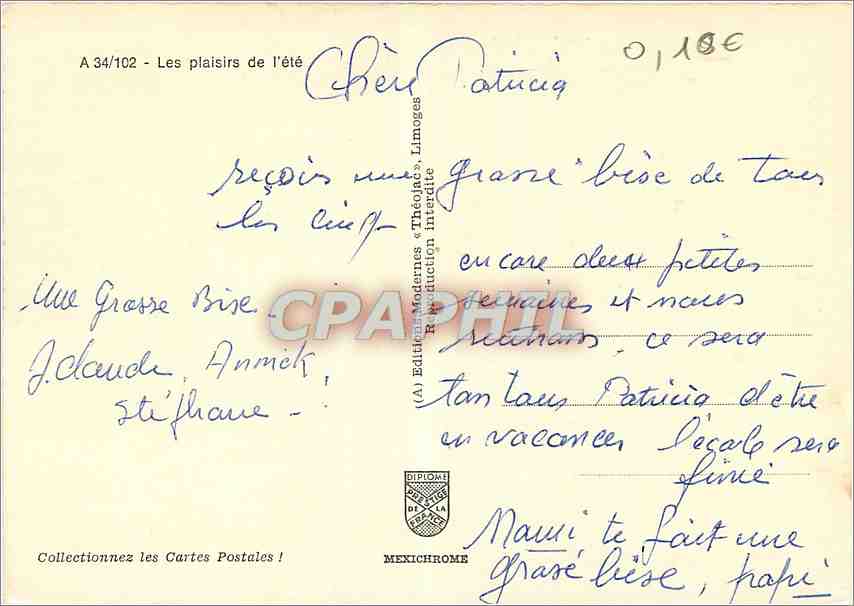 A 34/102 - Les plaisirs de l'été
0,10€
Chère Patricia
reçois une grosse bise de tous
les cinq
encore deux petites
semaines et nous
rentrons, ce sera
ton tour Patricia d'être
en vacances l'école sera
finie
Mami te fait une
grosse bise, papi
Une Grosse Bise.
J.claude, Annick,
Stéphane -
(A) Editions Modernes «Théojac», Limoges
Reproduction interdite
CPAPHIL
DIPLOME
PRESTIGE
DE LA
FRANCE
Collectionnez les Cartes Postales !
MEXICHROME